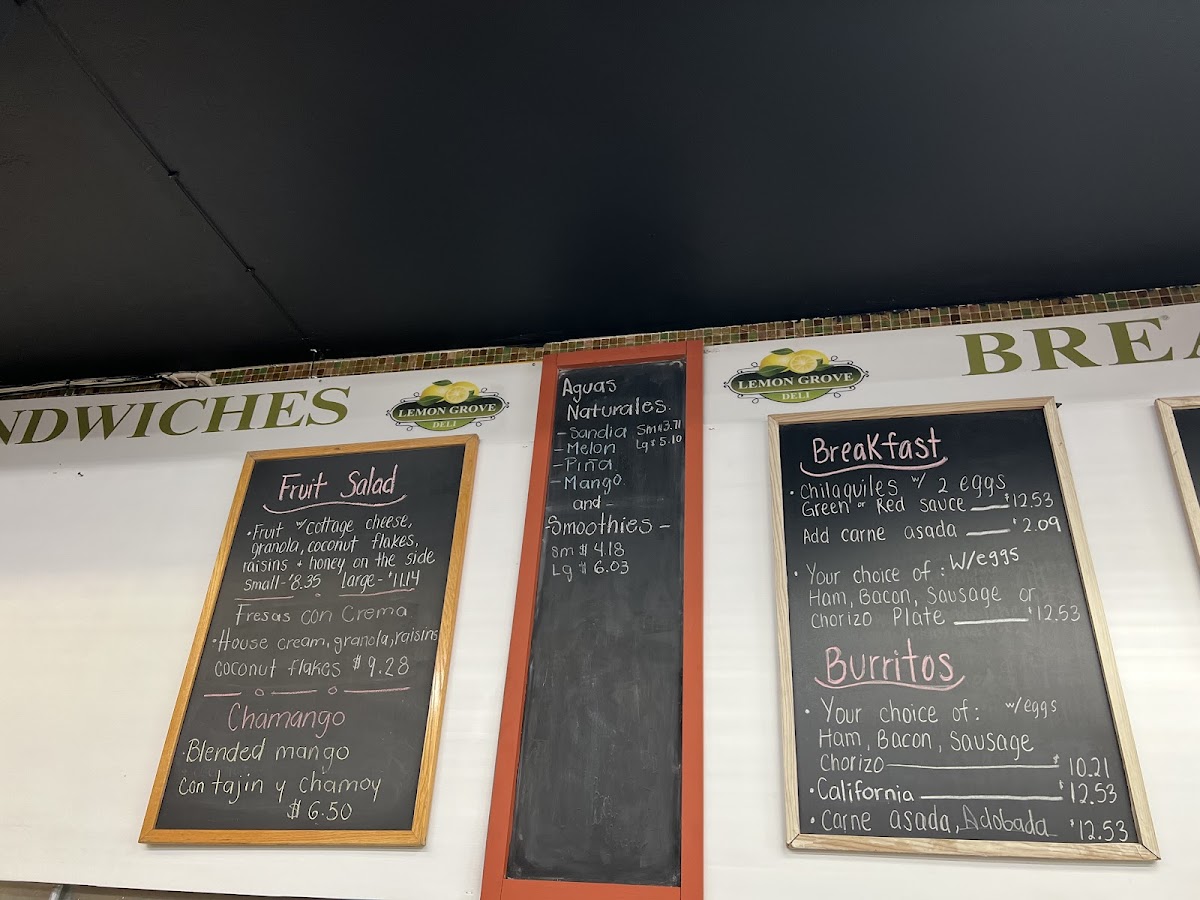 NDWICHES
LEMON GROVE
DELI
Fruit Salad
• Fruit w/ cottage cheese,
granola, coconut flakes,
raisins + honey on the side
small - $8.35 large - $11.14
Fresas con Crema
• House cream, granola, raisins
coconut flakes $9.28
Chamango
• Blended mango
con tajin y chamoy
$6.50
Aguas
Naturales.
- Sandia Sm $3.71
- Melon Lg $5.10
- Piña
- Mango.
and -
-Smoothies -
Sm $4.18
Lg $6.03
LEMON GROVE
DELI
BREA
Breakfast
• Chilaquiles w/ 2 eggs
Green or Red sauce $12.53
Add carne asada $2.09
• Your choice of: w/eggs
Ham, Bacon, Sausage or
Chorizo Plate $12.53
Burritos
• Your choice of: w/eggs
Ham, Bacon, Sausage
Chorizo $10.21
• California $12.53
• Carne asada, Adobada $12.53